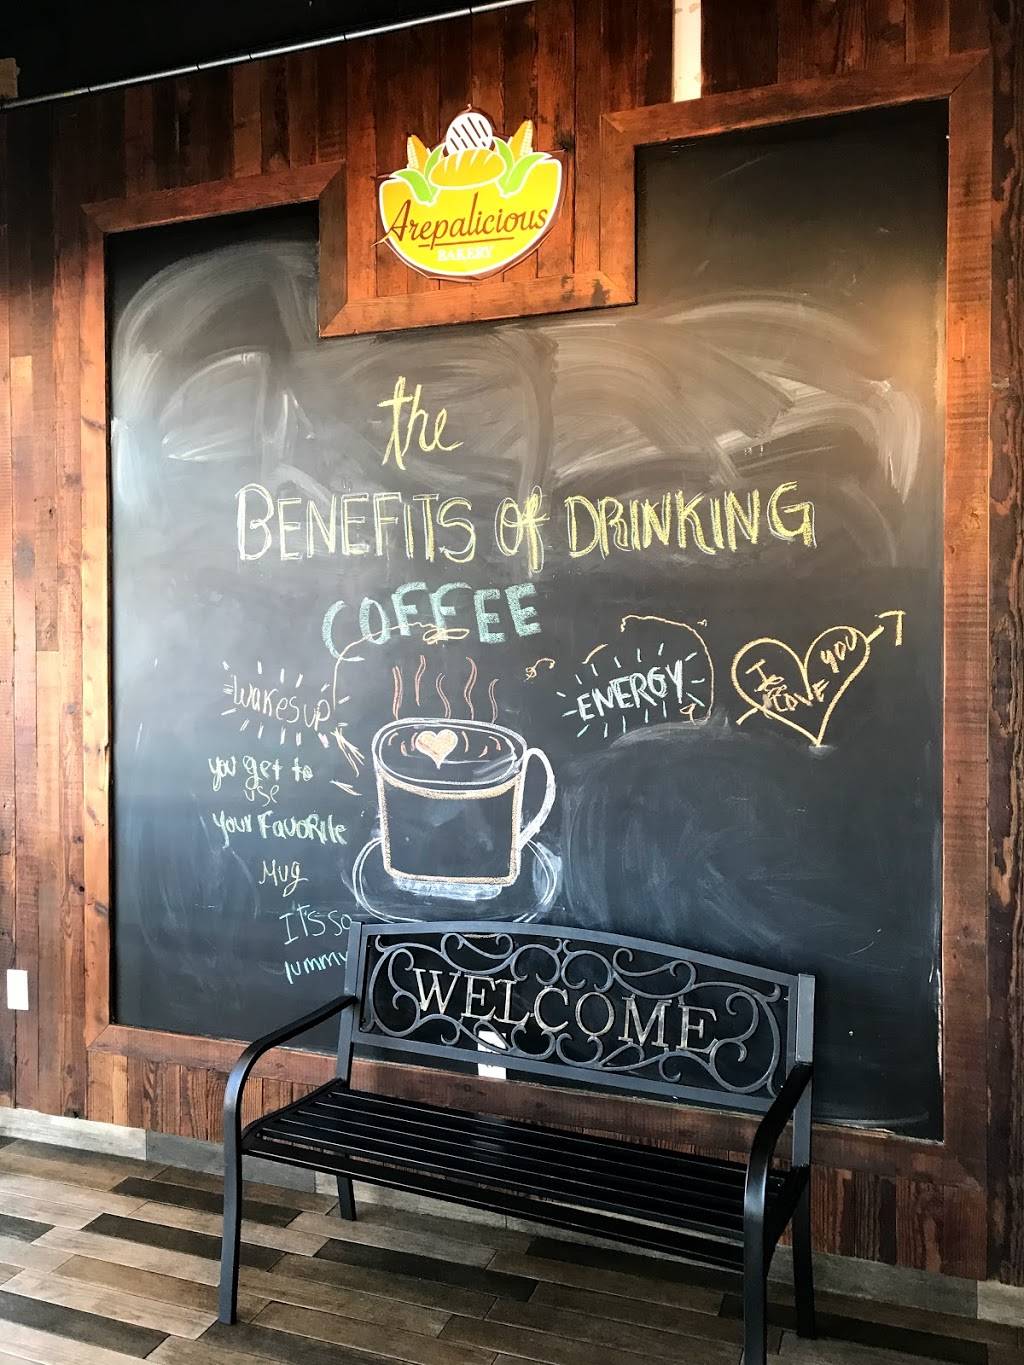 Arepalicious
BAKERY
the
BENEFITS of DRINKING
COFFEE
Wakes up
ENERGY
I LOVE YOU
you get to
use
your FavoRite
Mug
IT'S SO
yummy
WELCOME